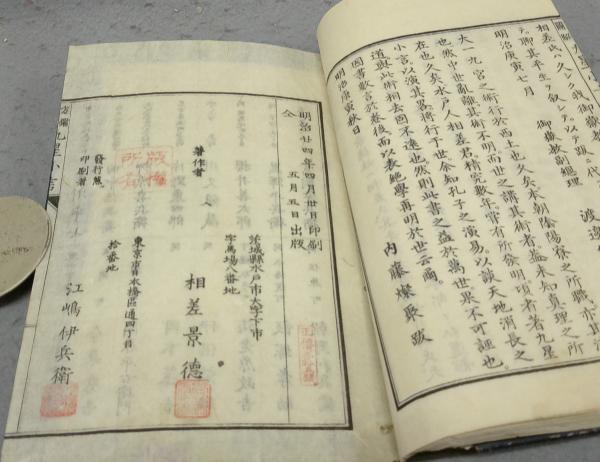 相差氏ハ久シク我御嶽教
テ聊其平生ヲ叙ヘテ以テ題ス
明治庚寅七月　御嶽教副総理　渡邊
大一九宮之術行於西土也久矣本朝陰陽寮之所職亦其
也然中世亂離其術不明而世之講其術者猛未知真理之所
在也久矣水戸人相差君積究數年嘗有所發明項者著九星
小言以演其畧將行于世余知孔子之演易以談天地消長之
道與此術相去不遠也然則此書之益於萬世果不可誣也
因書數言於卷後而以表絶學再明於世云爾
明治庚寅秋日　內藤燦聚跋
明治廿四年四月廿日印刷
仝　五月五日出版
茨城縣水戸市大字下市
字馬場八番地
著作者　相差景德
東京市日本橋區通四丁目
拾番地
發行兼
印刷者　江嶋伊兵衛
版權
所有